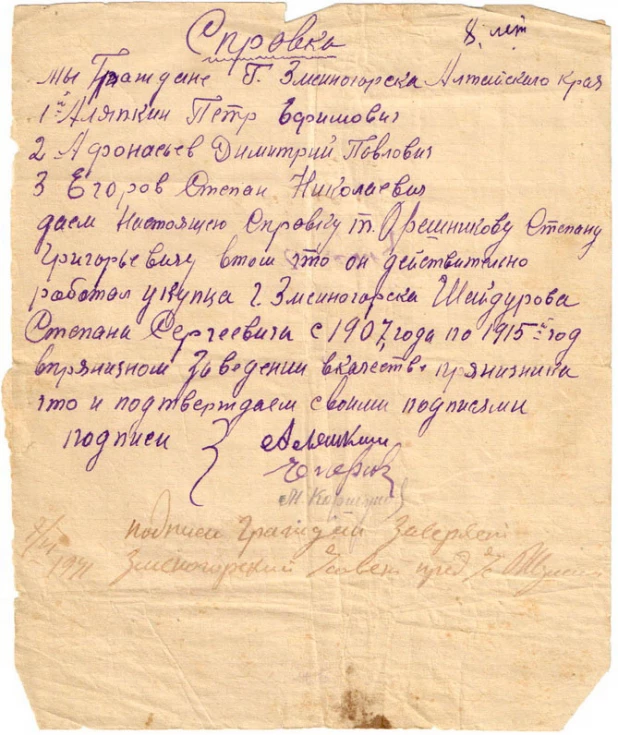 Справка 8 лет
Мы Граждане Г. Змеиногорска Алтайского края
1й Аляпкин Петр Ефимович
2 Афонасьев Димитрий Павлович
3 Егоров Степан Николаевич
даем настоящею справку т. Орешникову Степану
Григорьевичу втом что он действительно
работал у купца г. Змеиногорска Шайдурова
Степана Сергеевича с 1907 года по 1915й год
впрянизном Заведении вкачестве прянизника
что и подтверждаем своими подписями
подписи
Егоров
подписи Граждан Заверяет
1941 Змеиногорский